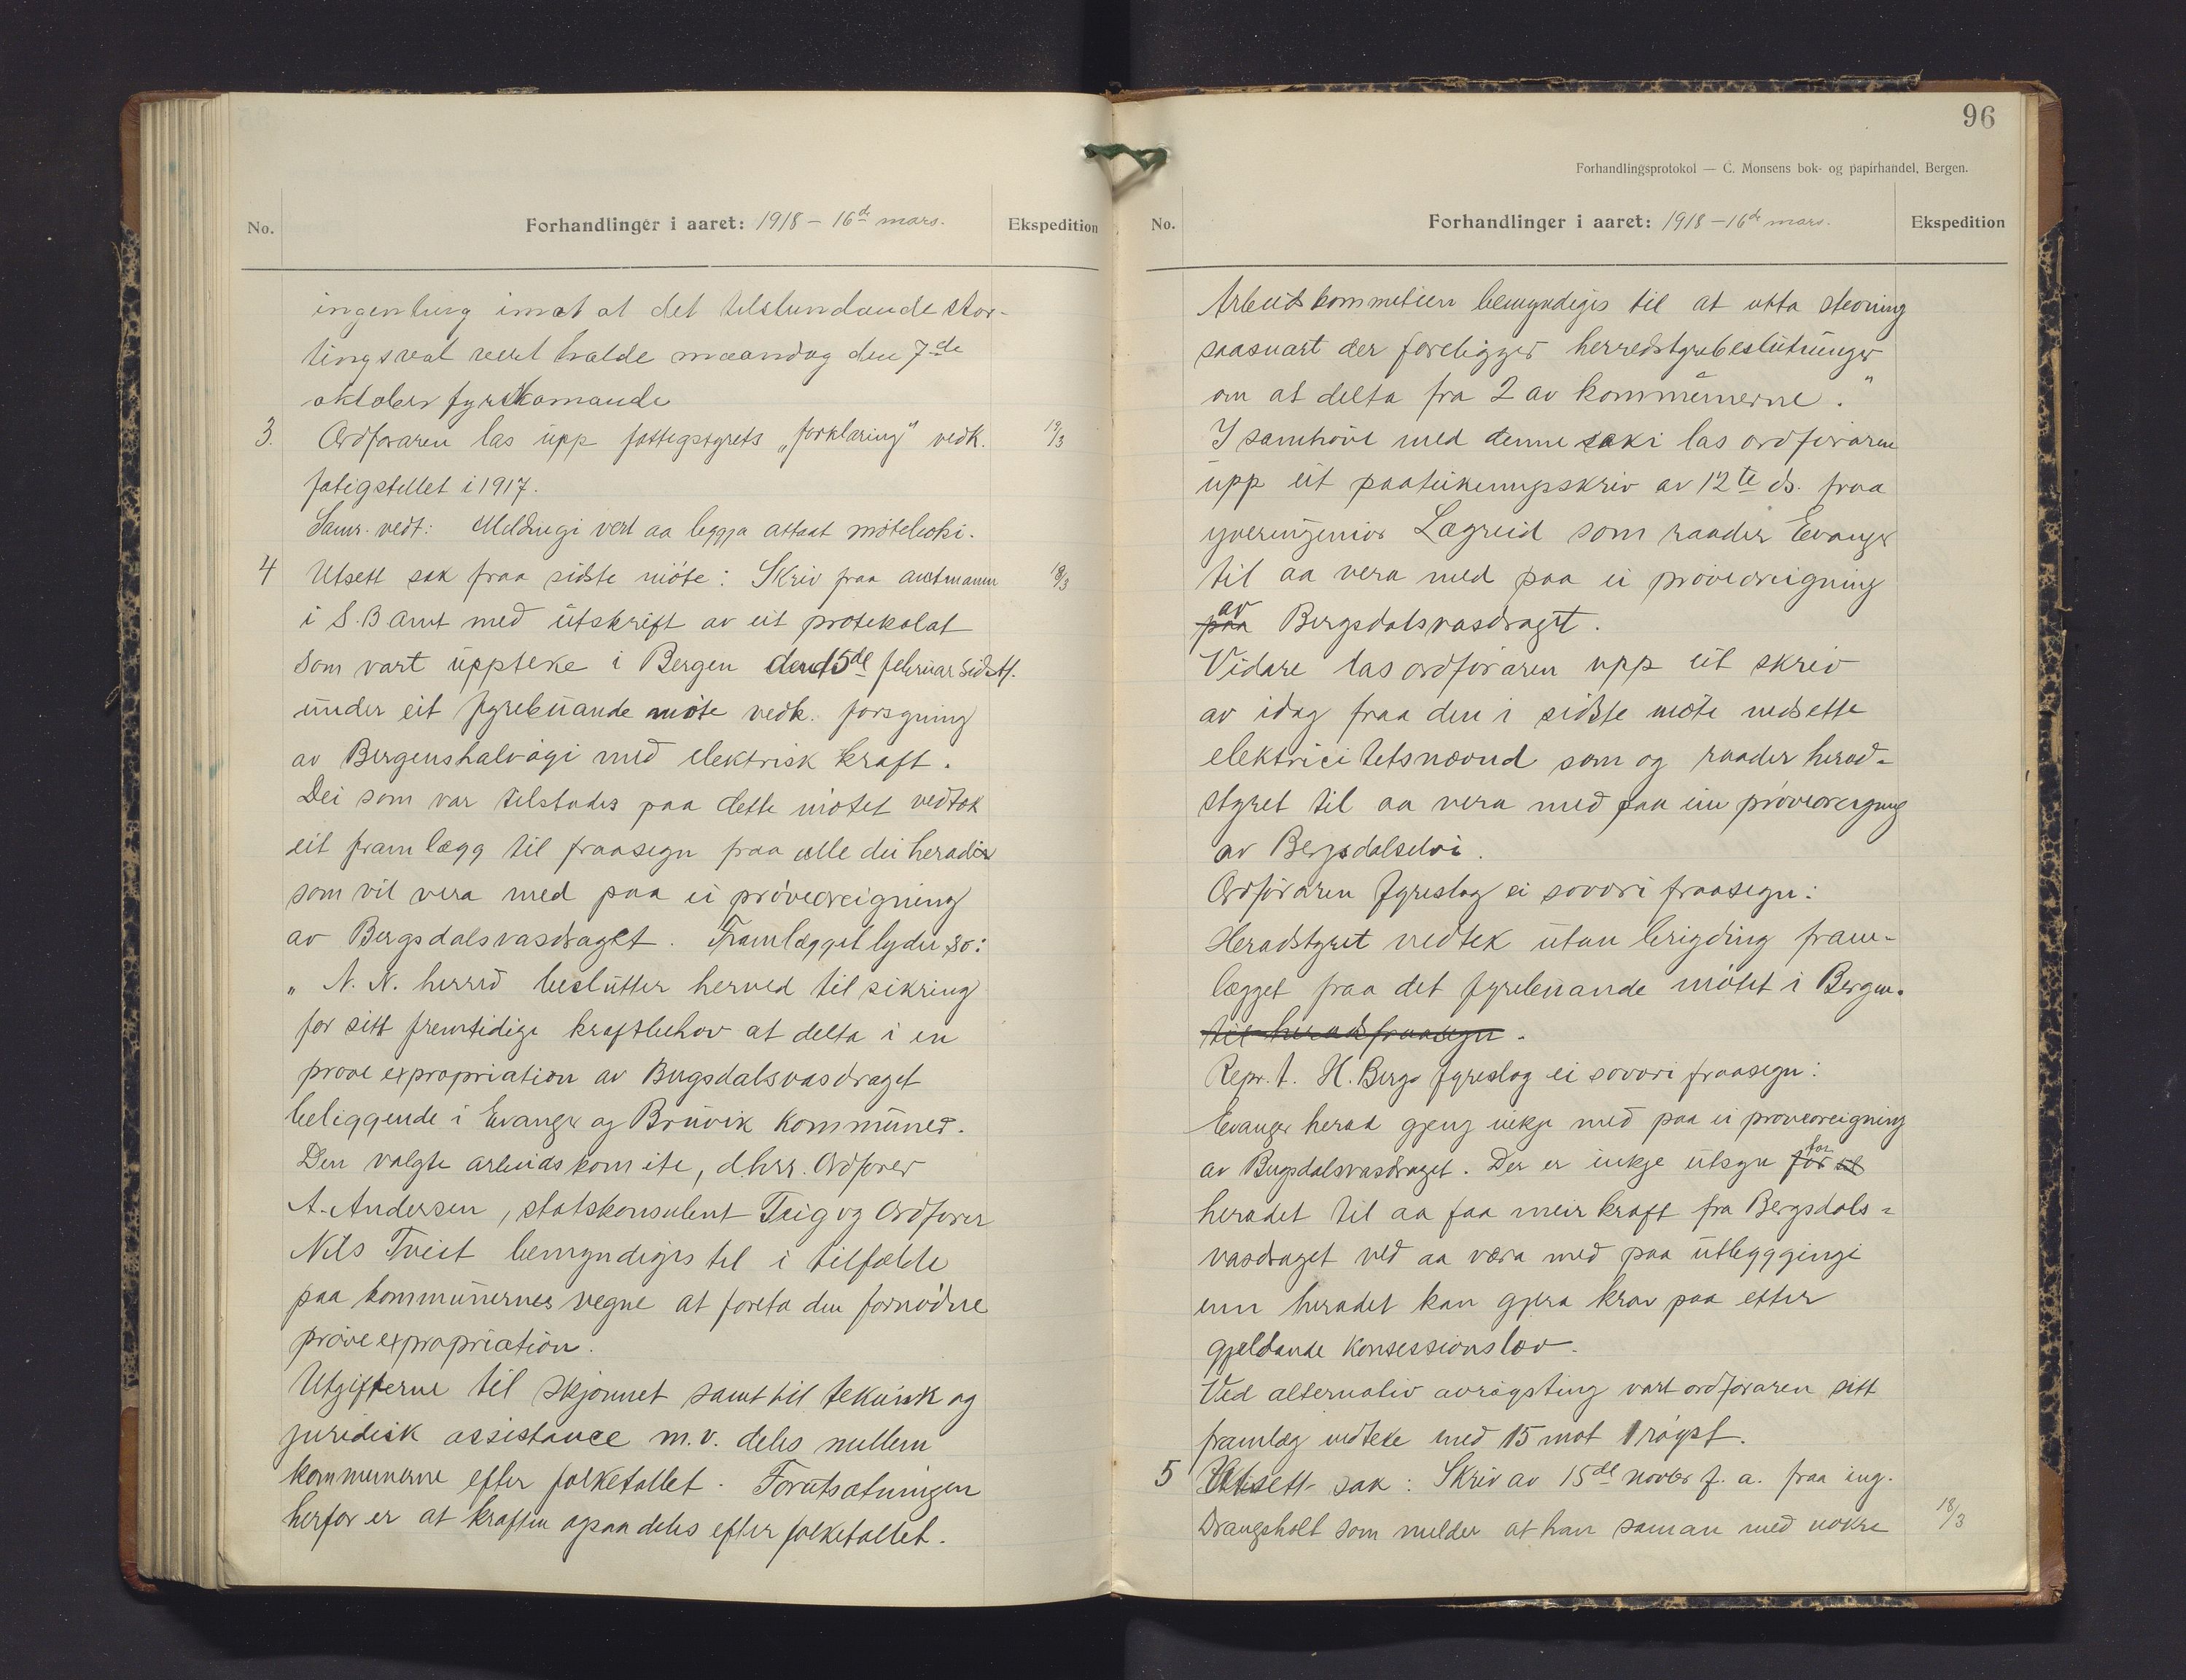 No.
Forhandlinger i aaret: 1918 – 16de mars.
Ekspedition
ingenting imot at det tilstundande stor-
tingsval vert halde maandag den 7de
oktober fyrikomande
3. Ordføraren las upp fattigstyrets „forklaring" vedk. 19/3
fatigstellet i 1917.
Samr. vedt: Meldingi vert aa leggja attaat møteboki.
4 Utsett sak fraa sidste møte: Skriv fraa amtmann 18/3
i S.B amt med utskrift av eit protokolat
som vart uppteke i Bergen den 15de februar sidstl.
under eit fyrebuande møte vedk. forsyning
av Bergenshalvøgi med elektrisk kraft.
Dei som var tilstades paa dette møtet vedtok
eit framlægg til fraasegn fraa alle dei herader
som vil vera med paa ei prøveoreigning
av Bergsdalsvasdraget. Framlægget lyder so:
„ N. N. herred beslutter herved til sikring
for sitt fremtidige kraftbehov at delta i en
prøveexpropriation av Bergsdalsvasdraget
beliggende i Evanger og Bruvik kommuner.
Den valgte arbeidskomite, d.hrr. Ordfører
A. Andersen, statskonsulent Teig og Ordfører
Nils Tveit bemyndiges til i tilfælde
paa kommunernes vegne at foreta den fornødne
prøveexpropriation.
Utgifterne til skjønnet samt til teknisk og
juridisk assistance m.v. deles mellem
kommunerne efter folketallet. Forutsætningen
herfor er at kraften ogsaa deles efter folketallet.
96
Forhandlingsprotokol — C. Monsens bok- og papirhandel, Bergen.
No.
Forhandlinger i aaret: 1918 – 16de mars.
Ekspedition
Arbeidskommiteen bemyndiges til at utta stevning
saasnart der foreligger herredstyrebeslutninger
om at delta fra 2 av kommunerne."
I samhøve med denne saki las ordføraren
upp eit paateikningsskriv av 12te ds. fraa
yveringeniør Lægreid som raader Evanger
til aa vera med paa ei prøveoreigning
paa av Bergsdalsvasdraget.
Vidare las ordføraren upp eit skriv
av idag fraa den i sidste møte nedsette
elektricitetsnævnd som og raader herad-
styret til aa vera med paa ein prøveoreigning
av Bergsdalselvi.
Ordføraren fyreslog ei sovori fraasegn:
Heradstyret vedtek utan brigding fram-
lægget fraa det fyrebuande møtet i Bergen.
til heradsfraasegn.
Repr. A. H. Berge fyreslog ei sovori fraasegn:
Evanger herad gjeng inkje med paa ei prøveoreigning
av Bergsdalsvasdraget. Der er inkje utsyn for
heradet til aa faa meir kraft fra Bergsdals-
vasdraget ved aa væra med paa utbygggingi
enn heradet kan gjera krav paa etter
gjeldande konsessionslov.
Ved alternativ avrøysting vart ordføraren sitt
framlæg vedteke med 15 mot 1 røyst.
5 Utsett sak: Skriv av 15de novbr f. a. fraa ing.
Drangsholt som melder at han saman med nokre 18/3